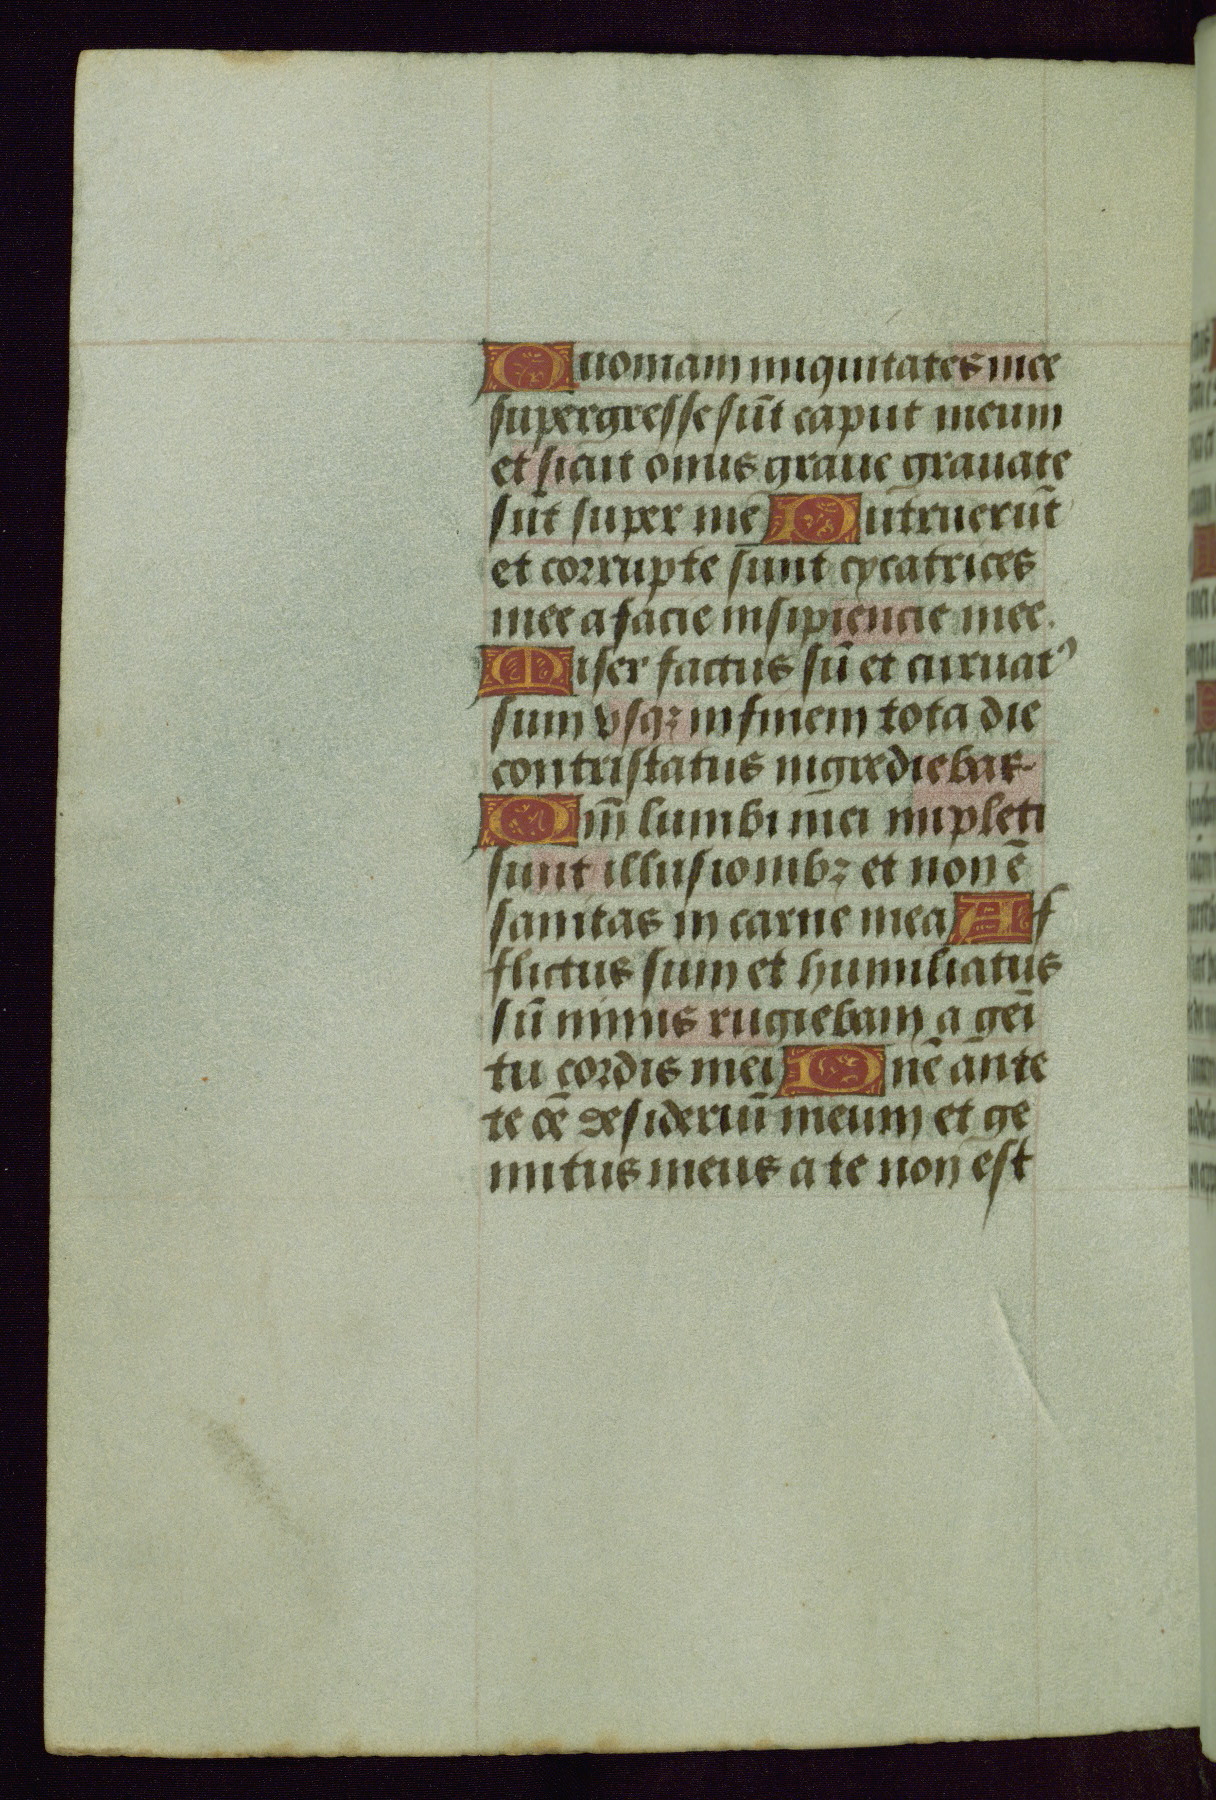 Quoniam iniquitates mee
supergresse sūt caput meum
et sicut onnus graue grauate
sūt super me Putruerūt
et corrupte sunt cycatrices
mee a facie insipiencie mee.
Miser factus sū et curuatꝰ
sum vsqꝫ in finem tota die
contristatus ingrediebar
Qm̄ lumbi mei inpleti
sunt illusionibꝫ et non ē
sanitas in carne mea Af
flictus sum et humiliatus
sū nimis rugiebam a gemi
tu cordis mei Dne ante
te ōe desideriū meum et ge
mitus meus a te non est